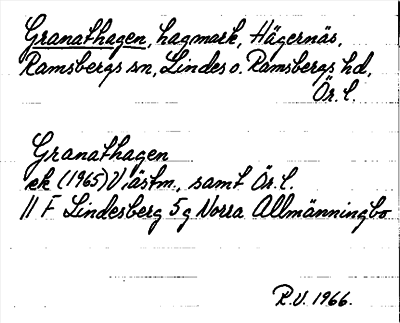 Granathagen, hagmark, Hägernäs,
Ramsbergs sn, Lindes o. Ramsbergs hd,
Ör. l.
Granathagen
ek (1965) Västm., samt Ör. l.
11 F Lindesberg 5 g Norra Allmänningbo
R.V. 1966.